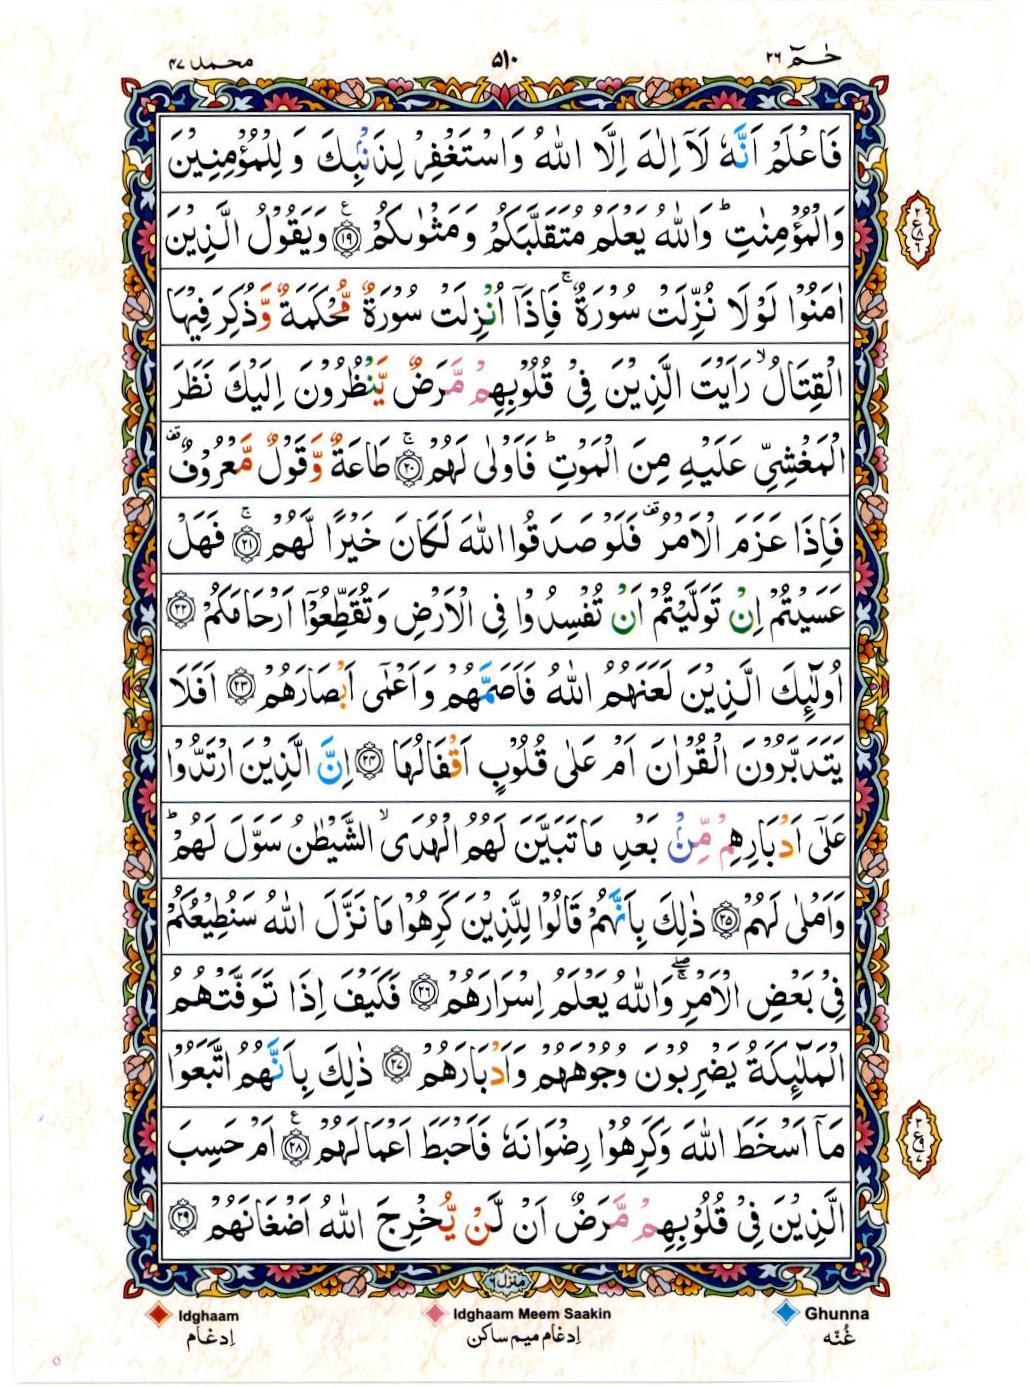 حٰمٓ ٢٦
٥١٠
محمد ٤٧
فَاعْلَمْ اَنَّهٗ لَاۤ اِلٰهَ اِلَّا اللّٰهُ وَاسْتَغْفِرْ لِذَنْۢبِكَ وَ لِلْمُؤْمِنِيْنَ
وَالْمُؤْمِنٰتِ ؕ وَاللّٰهُ يَعْلَمُ مُتَقَلَّبَكُمْ وَمَثْوٰىكُمْ ۧ ﴿١٩﴾ وَيَقُوْلُ الَّذِيْنَ
اٰمَنُوْا لَوْلَا نُزِّلَتْ سُوْرَةٌ ۚ فَاِذَاۤ اُنْزِلَتْ سُوْرَةٌ مُّحْكَمَةٌ وَّذُكِرَ فِيْهَا
الْقِتَالُ ۙ رَاَيْتَ الَّذِيْنَ فِيْ قُلُوْبِهِمْ مَّرَضٌ يَّنْظُرُوْنَ اِلَيْكَ نَظَرَ
الْمَغْشِيِّ عَلَيْهِ مِنَ الْمَوْتِ ؕ فَاَوْلٰى لَهُمْ ۚ ﴿٢٠﴾ طَاعَةٌ وَّقَوْلٌ مَّعْرُوْفٌ ۫
فَاِذَا عَزَمَ الْاَمْرُ ۫ فَلَوْ صَدَقُوا اللّٰهَ لَكَانَ خَيْرًا لَّهُمْ ۚ ﴿٢١﴾ فَهَلْ
عَسَيْتُمْ اِنْ تَوَلَّيْتُمْ اَنْ تُفْسِدُوْا فِي الْاَرْضِ وَتُقَطِّعُوْۤا اَرْحَامَكُمْ ﴿٢٢﴾
اُولٰٓئِكَ الَّذِيْنَ لَعَنَهُمُ اللّٰهُ فَاَصَمَّهُمْ وَاَعْمٰۤى اَبْصَارَهُمْ ﴿٢٣﴾ اَفَلَا
يَتَدَبَّرُوْنَ الْقُرْاٰنَ اَمْ عَلٰى قُلُوْبٍ اَقْفَالُهَا ﴿٢٤﴾ اِنَّ الَّذِيْنَ ارْتَدُّوْا
عَلٰۤى اَدْبَارِهِمْ مِّنْۢ بَعْدِ مَا تَبَيَّنَ لَهُمُ الْهُدَى ۙ الشَّيْطٰنُ سَوَّلَ لَهُمْ ؕ
وَاَمْلٰى لَهُمْ ﴿٢٥﴾ ذٰلِكَ بِاَنَّهُمْ قَالُوْا لِلَّذِيْنَ كَرِهُوْا مَا نَزَّلَ اللّٰهُ سَنُطِيْعُكُمْ
فِيْ بَعْضِ الْاَمْرِ ۖۚ وَاللّٰهُ يَعْلَمُ اِسْرَارَهُمْ ﴿٢٦﴾ فَكَيْفَ اِذَا تَوَفَّتْهُمُ
الْمَلٰٓئِكَةُ يَضْرِبُوْنَ وُجُوْهَهُمْ وَاَدْبَارَهُمْ ﴿٢٧﴾ ذٰلِكَ بِاَنَّهُمُ اتَّبَعُوْا
مَاۤ اَسْخَطَ اللّٰهَ وَكَرِهُوْا رِضْوَانَهٗ فَاَحْبَطَ اَعْمَالَهُمْ ۧ ﴿٢٨﴾ اَمْ حَسِبَ
الَّذِيْنَ فِيْ قُلُوْبِهِمْ مَّرَضٌ اَنْ لَّنْ يُّخْرِجَ اللّٰهُ اَضْغَانَهُمْ ﴿٢٩﴾
منزل ٦
Ghunna
غُنّه
Idghaam Meem Saakin
اِدغام میم ساکن
Idghaam
اِدغام